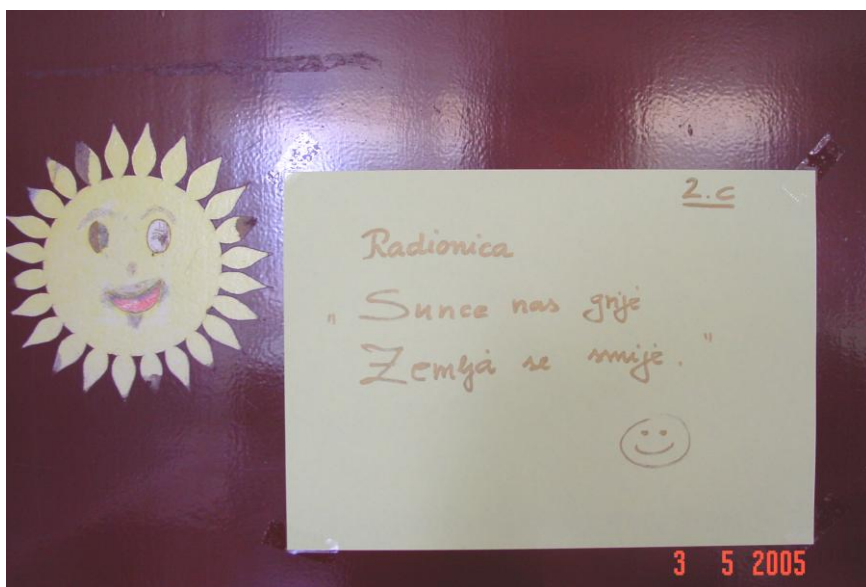 2.c
Radionica
"Sunce nas grije
Zemlja se smije."
3 5 2005